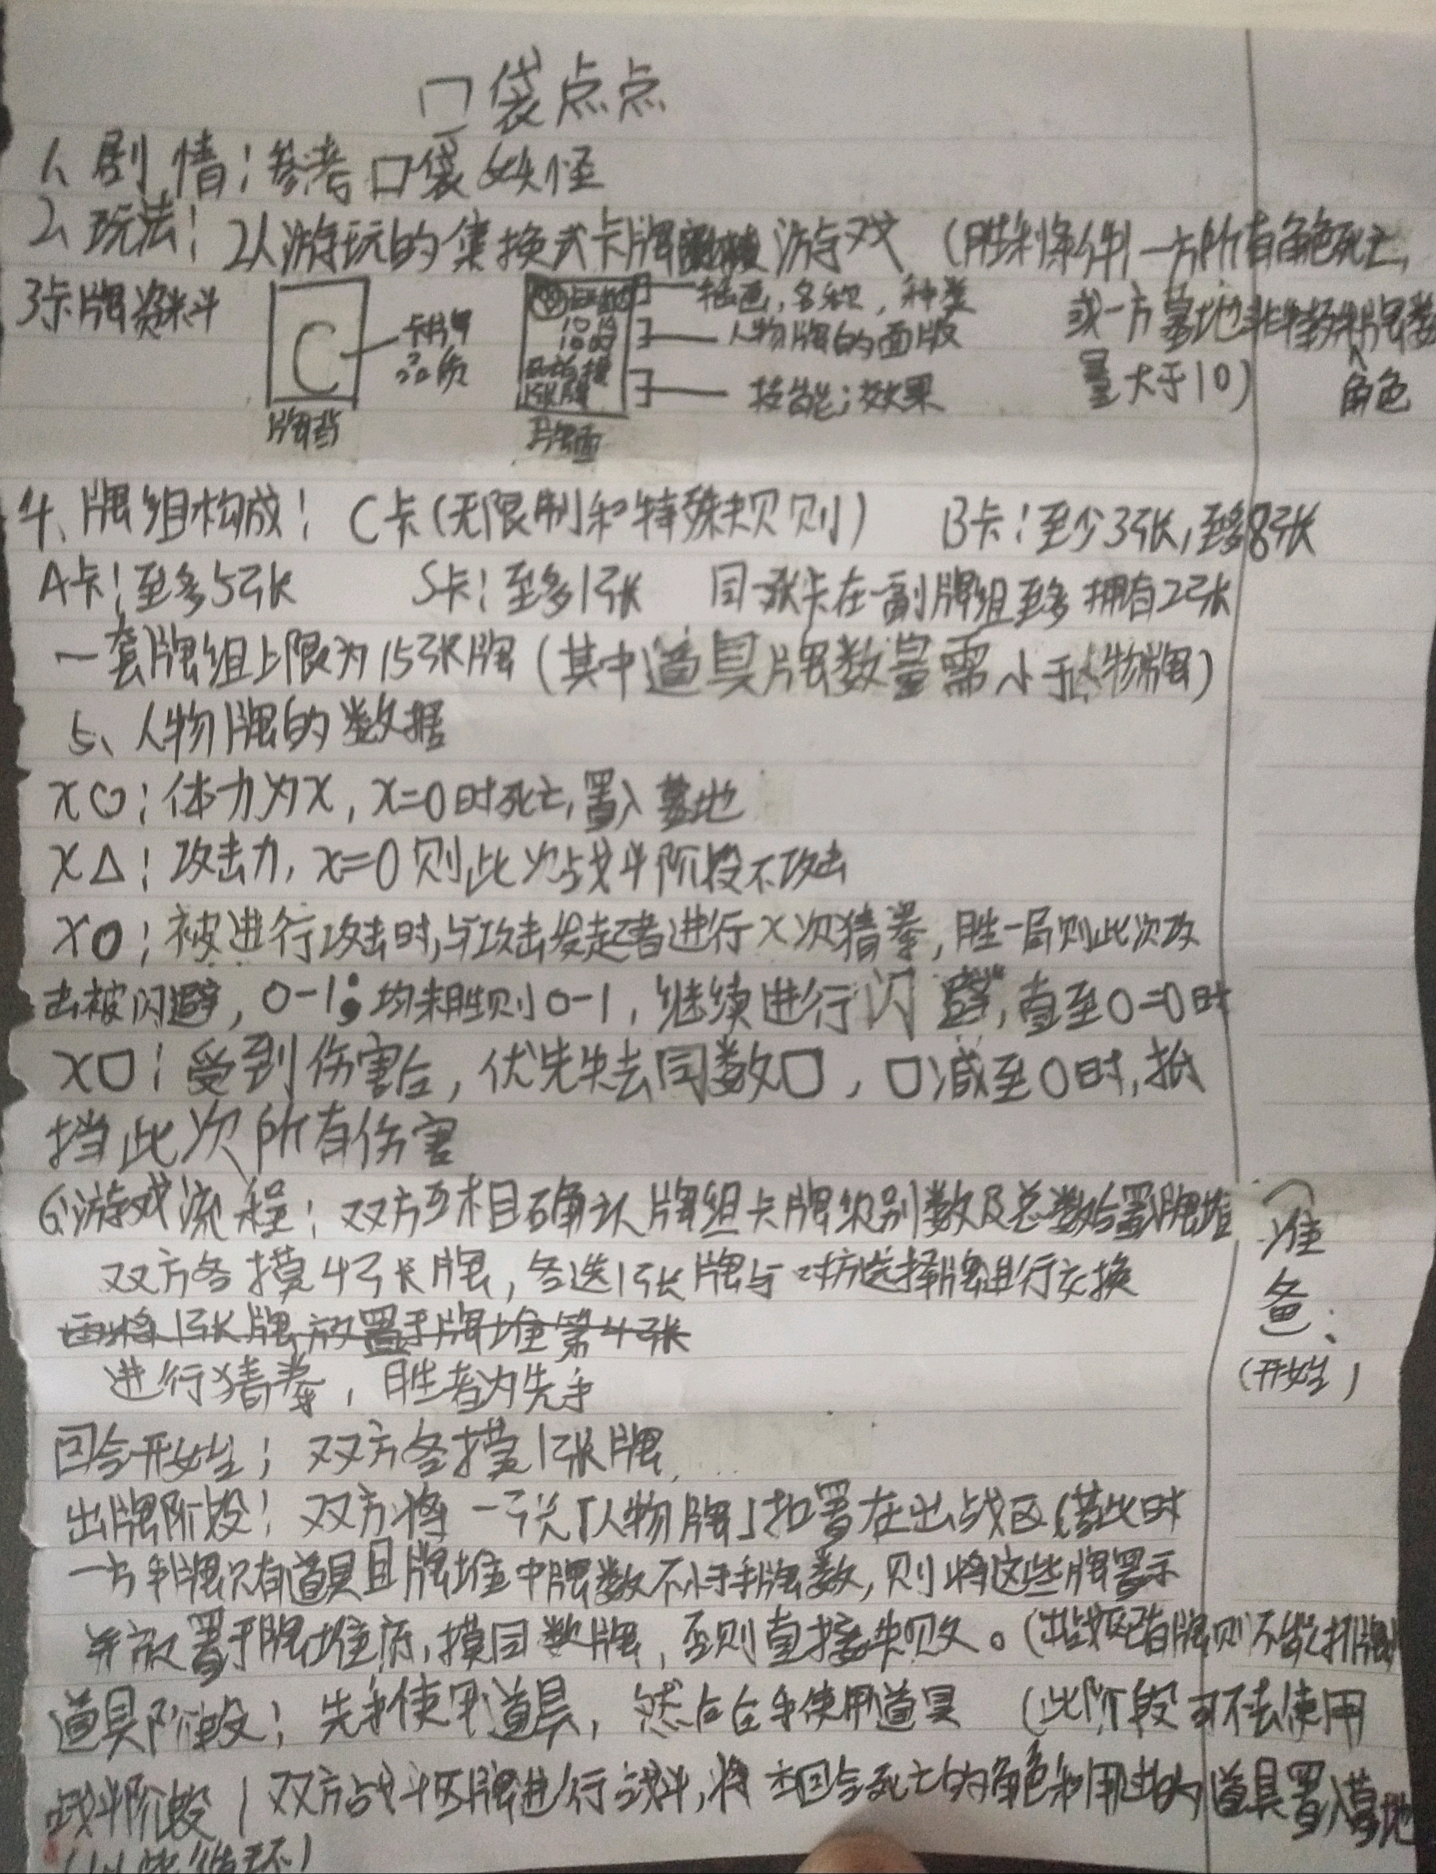 口袋点点
1、剧情：参考口袋妖怪
2、玩法：2人游玩的集换式卡牌游戏（胜利条件：一方所有角色死亡，
或一方墓地非角色牌数
量大于10）
3卡牌资料
C
卡牌
品质
牌背
插画，名称，种类
人物牌的面版
技能；效果
牌面
4、牌组构成：C卡（无限制和特殊规则） B卡：至少3张，至多8张
A卡：至多5张 S卡：至多1张 同一张卡在一副牌组至多拥有2张
一套牌组上限为15张牌（其中道具牌数量需小于人物牌）
5、人物牌的数据
x♡：体力为x，x=0时死亡，置入墓地
x△：攻击力，x=0则此次战斗阶段不攻击
x○：被进行攻击时，与攻击发起者进行x次猜拳，胜一局则此次攻
击被闪避，○-1；均未胜则○-1，继续进行闪避，直至○=0时
x□：受到伤害后，优先失去同数□，□减至0时，抵
挡此次所有伤害
6、游戏流程：双方互相确认牌组卡牌级别数及总数后置牌堆
双方各摸4张牌，各选1张牌与对方选择牌进行交换
再将1张牌放置于牌堆第4张
进行猜拳，胜者为先手
（准
备：
（开始）
回合开始：双方各摸1张牌
出牌阶段：双方将一张「人物牌」扣置在出战区（若此时
一方手牌只有道具且牌堆中牌数不小于手牌数，则将这些牌展示
并放置于牌堆底，摸同数牌，否则直接失败。（出战区已有牌则不能扣牌）
道具阶段：先手使用道具，然后后手使用道具 （此阶段可不去使用
战斗阶段：双方战斗区牌进行战斗，将本回合死亡的角色和用过的道具置入墓地
（以此循环）